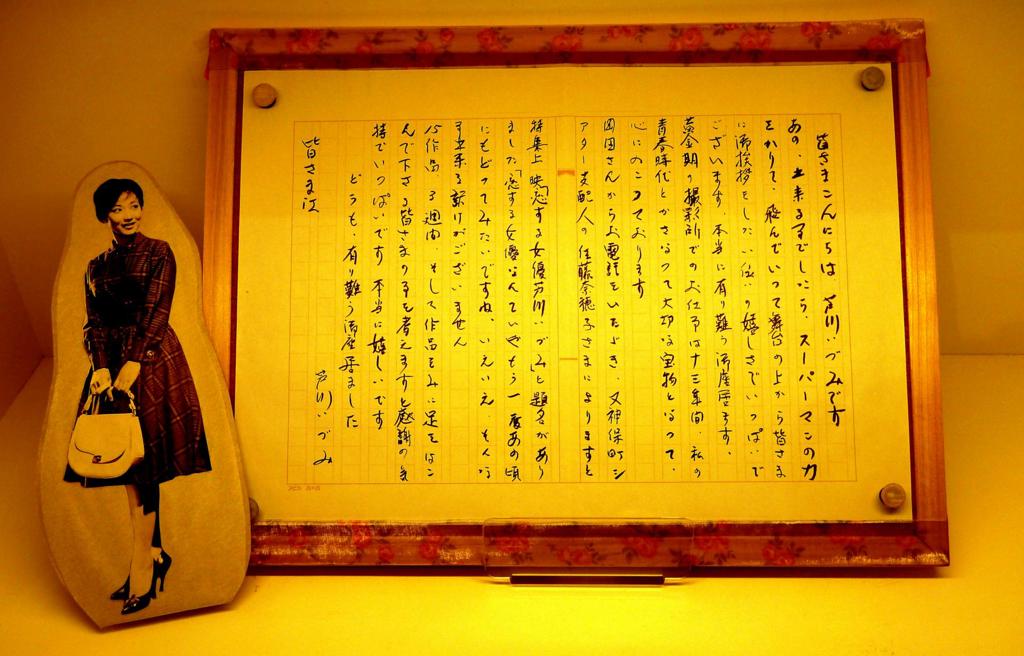 皆さまこんにちは 芦川いづみです
あの、出来る事でしたら、スーパーマンの力
をかりて、飛んでいって舞台の上から皆さま
に御挨拶をしたい位の嬉しさでいっぱいで
ございます。本当に有り難う御座居ます。
黄金期の撮影所でのお仕事は十三年間、私の
青春時代とかさなって大切な宝物となって、
心にのこっております
岡田さんからお電話をいただき、又神保町シ
アター支配人の佐藤奈穂子さまによりますと
特集上映「恋する女優芦川いづみ」と題名があり
ました「恋する女優なんていやもう一度あの頃
にもどってみたいですね、いえいえ、そんな
事出来る訳がございません
15作品 3週間、そして作品をみに足をはこ
んで下さる皆さまの事を考えますと感謝の気
持でいっぱいです 本当に嬉しいです
どうも、有り難う御座居ました
芦川いづみ
皆さま江